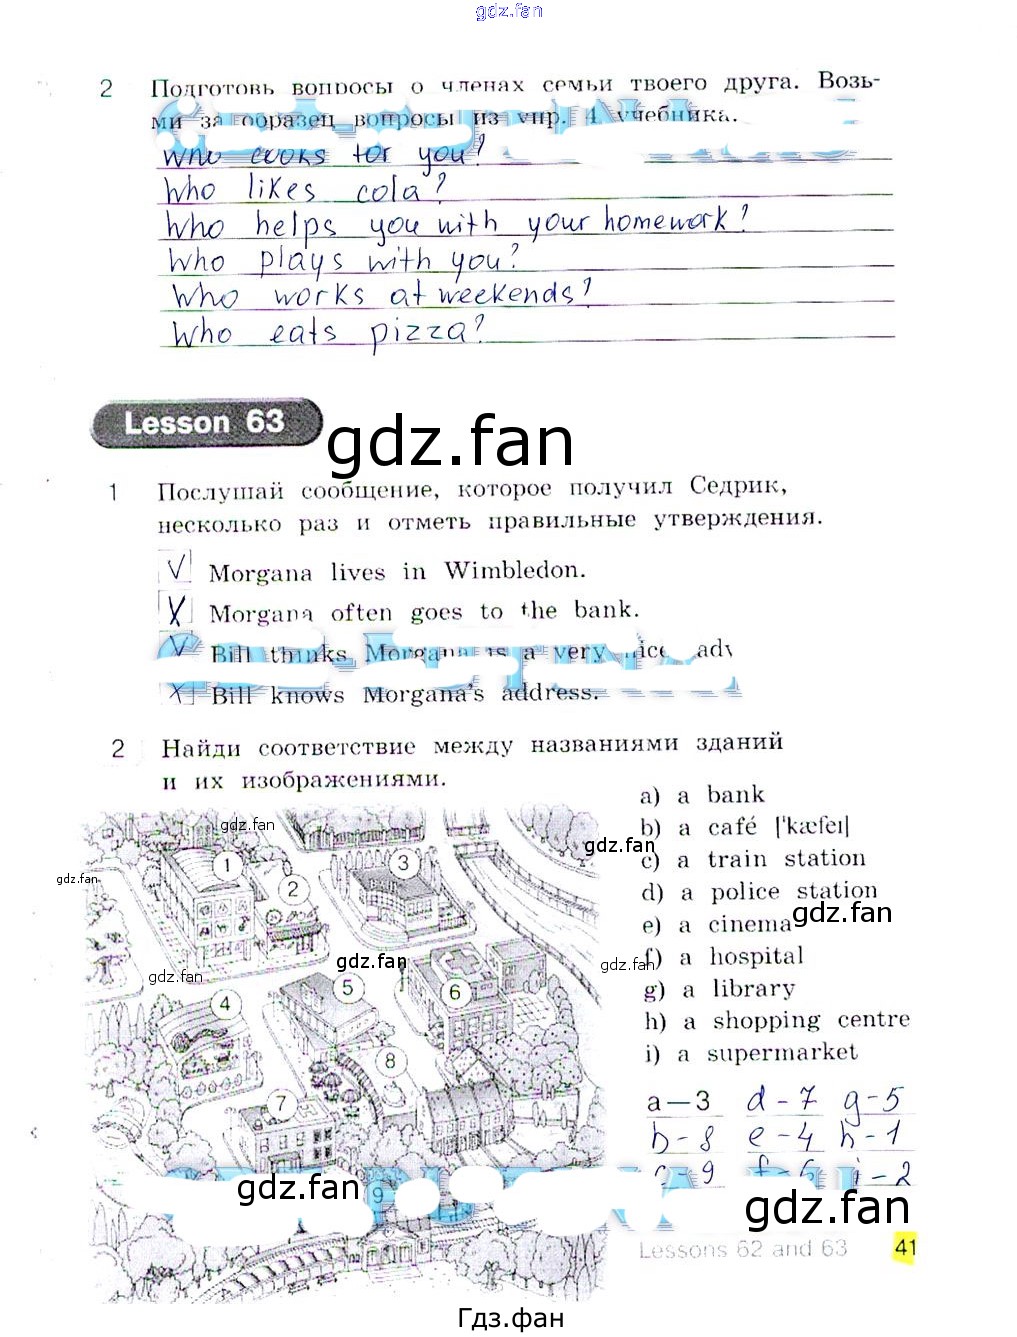 gdz.fan
2 Подготовь вопросы о членах семьи твоего друга. Возь-
ми за образец вопросы из упр. 4 учебника.
Who cooks for you?
Who likes cola?
Who helps you with your homework?
Who plays with you?
Who works at weekends?
Who eats pizza?
Lesson 63
gdz.fan
1 Послушай сообщение, которое получил Седрик,
несколько раз и отметь правильные утверждения.
V Morgana lives in Wimbledon.
X Morgana often goes to the bank.
V Bill thinks Morgana is a very nice
X Bill knows Morgana's address.
2 Найди соответствие между названиями зданий
и их изображениями.
a) a bank
b) a café ['kæfeɪ]
c) a train station
d) a police station
e) a cinema
f) a hospital
g) a library
h) a shopping centre
i) a supermarket
gdz.fan
gdz.fan
gdz.fan
gdz.fan
gdz.fan
gdz.fan
gdz.fan
1
2
3
4
5
6
7
8
9
a — 3 d - 7 g - 5
b - 8 e - 4 h - 1
c - 9 f - 6 i - 2
gdz.fan
gdz.fan
Lessons 62 and 63 41
Гдз.фан